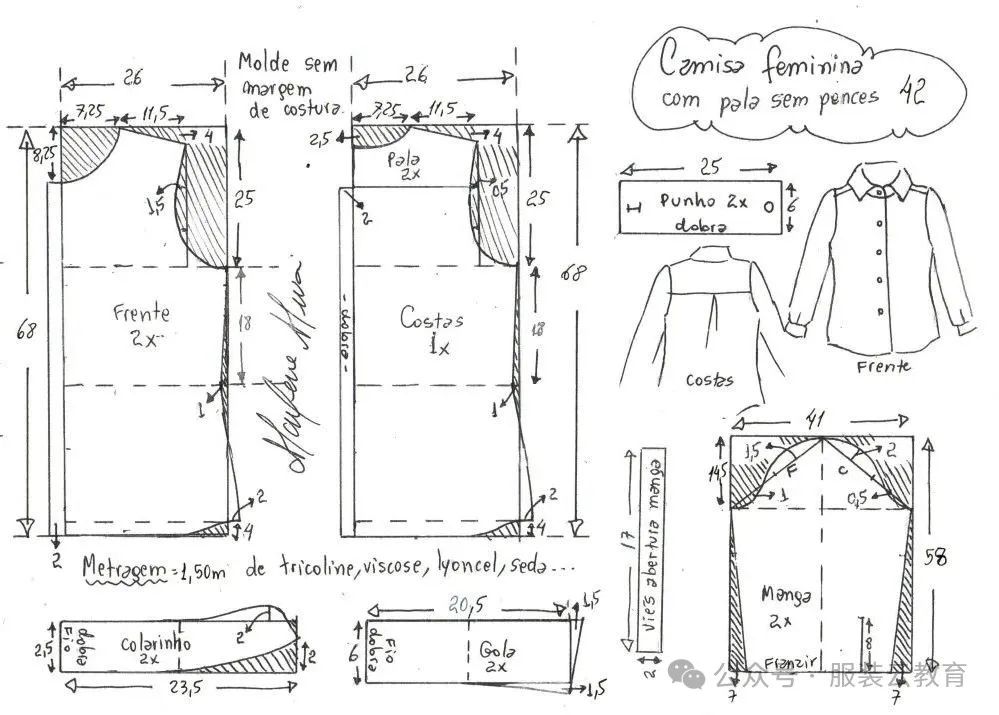 Molde sem
margem
de costura.
Camisa feminina
com pala sem pences 42
26
7,25
11,5
4
8,25
1,5
25
68
Frente
2x
18
1
2
4
2
26
7,25
11,5
4
2,5
Pala
2x
0,5
2
25
68
Costas
1x
- dobra -
18
1
2
4
Marlene Mukai
25
Punho 2x
dobra
6
Costas
Frente
41
1,5
2
14,5
F
C
1
0,5
58
Manga
2x
8
Franzir
7
7
17
Viés abertura manga
2
Metragem = 1,50m de tricoline, viscose, lyoncel, seda...
2,5
dobra
Fio
Colarinho
2x
2
2
23,5
20,5
1,5
6
dobra
Fio
Gola
2x
1,5
公众号 · 服装云教育